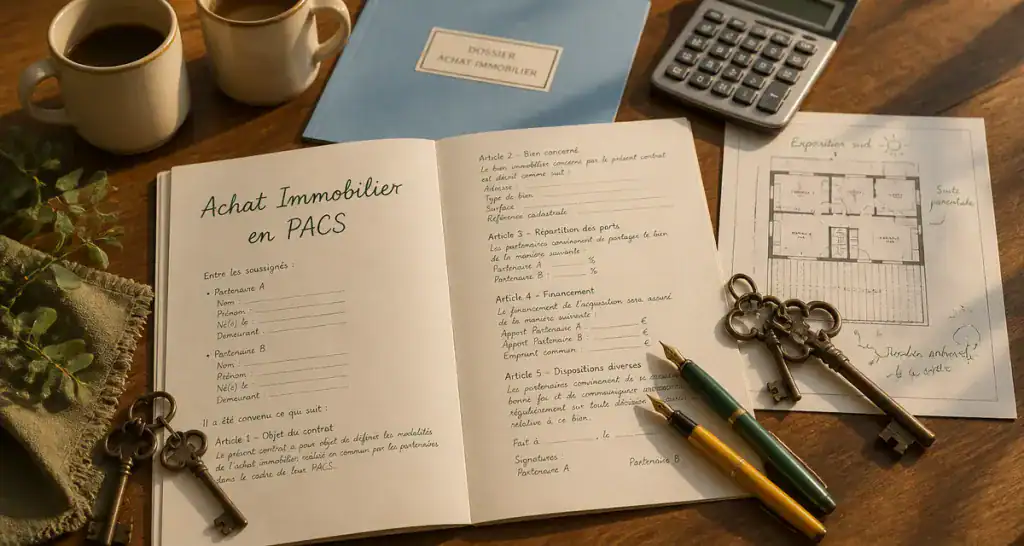 DOSSIER
ACHAT IMMOBILIER
Achat Immobilier
en PACS
Entre les soussignés :
• Partenaire A
Nom :
Prénom :
Né(e) le :
Demeurant :
• Partenaire B
Nom :
Prénom :
Né(e) le :
Demeurant :
Il a été convenu ce qui suit :
Article 1 – Objet du contrat
Le présent contrat a pour objet de définir les modalités
de l'achat immobilier réalisé en commun par les partenaires
dans le cadre de leur PACS.
Article 2 – Bien concerné
Le bien immobilier concerné par le présent contrat
est décrit comme suit :
Adresse :
Type de bien :
Surface :
Référence cadastrale :
Article 3 – Répartition des parts
Les partenaires conviennent de partager le bien
de la manière suivante :
Partenaire A : %
Partenaire B : %
Article 4 – Financement
Le financement de l'acquisition sera assuré
de la manière suivante :
Apport Partenaire A : €
Apport Partenaire B : €
Emprunt commun : €
Article 5 – Dispositions diverses
Les partenaires conviennent de se
bonne foi et de communiquer
régulièrement sur toute décision
relative à ce bien.
Fait à , le
Signatures :
Partenaire A Partenaire B
Exposition sud
Suite
parentale